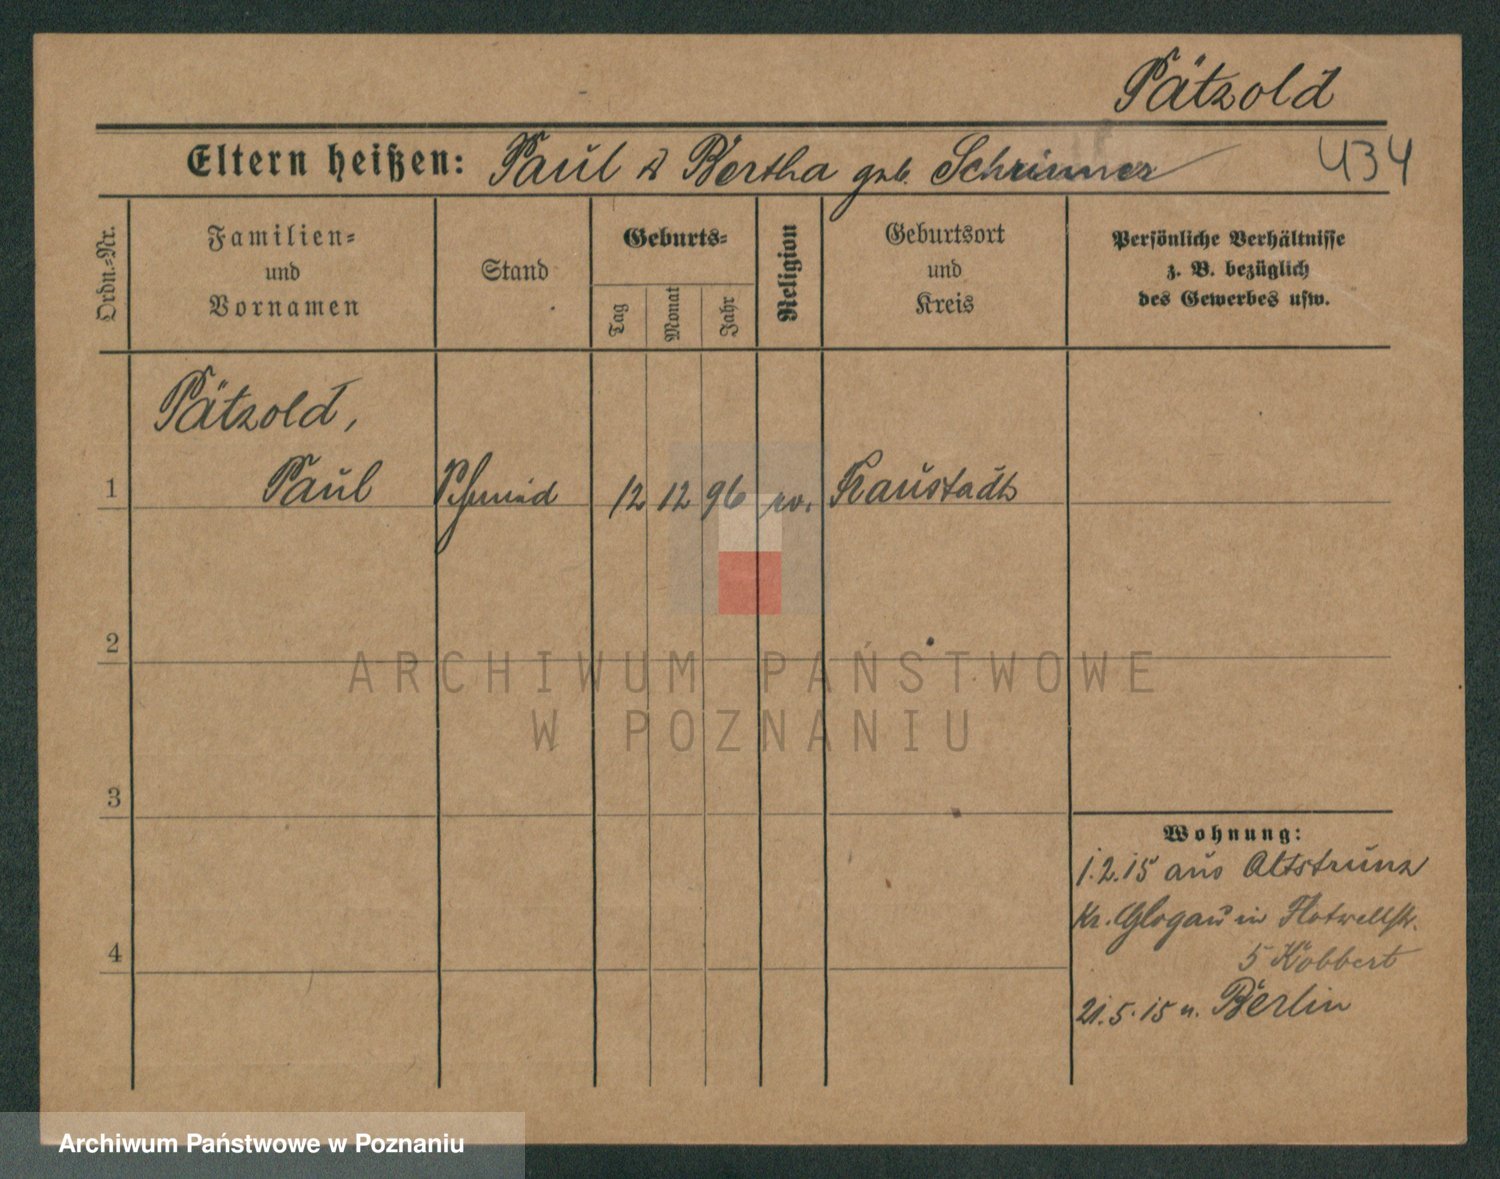 Pätzold
Eltern heißen: Paul & Bertha geb. Schrinner
434
Ordn.=Nr.
Familien=
und
Vornamen
Stand
Geburts=
Tag
Monat
Jahr
Religion
Geburtsort
und
Kreis
Persönliche Verhältnisse
z. B. bezüglich
des Gewerbes usw.
Pätzold,
1 Paul Schmied 12 12 96 ev. Fraustadt
2
3
4
Wohnung:
1.2.15 aus Altstrunz
Kr. Glogau in Flotwellstr.
5 Köbbert
21.5.15 n. Berlin
ARCHIWUM PAŃSTWOWE
W POZNANIU
Archiwum Państwowe w Poznaniu